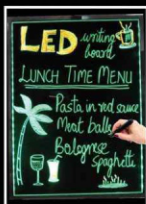 LED writing
board
LUNCH TIME MENU
Pasta in red sauce
Meat balls
Bolognese
spaghetti